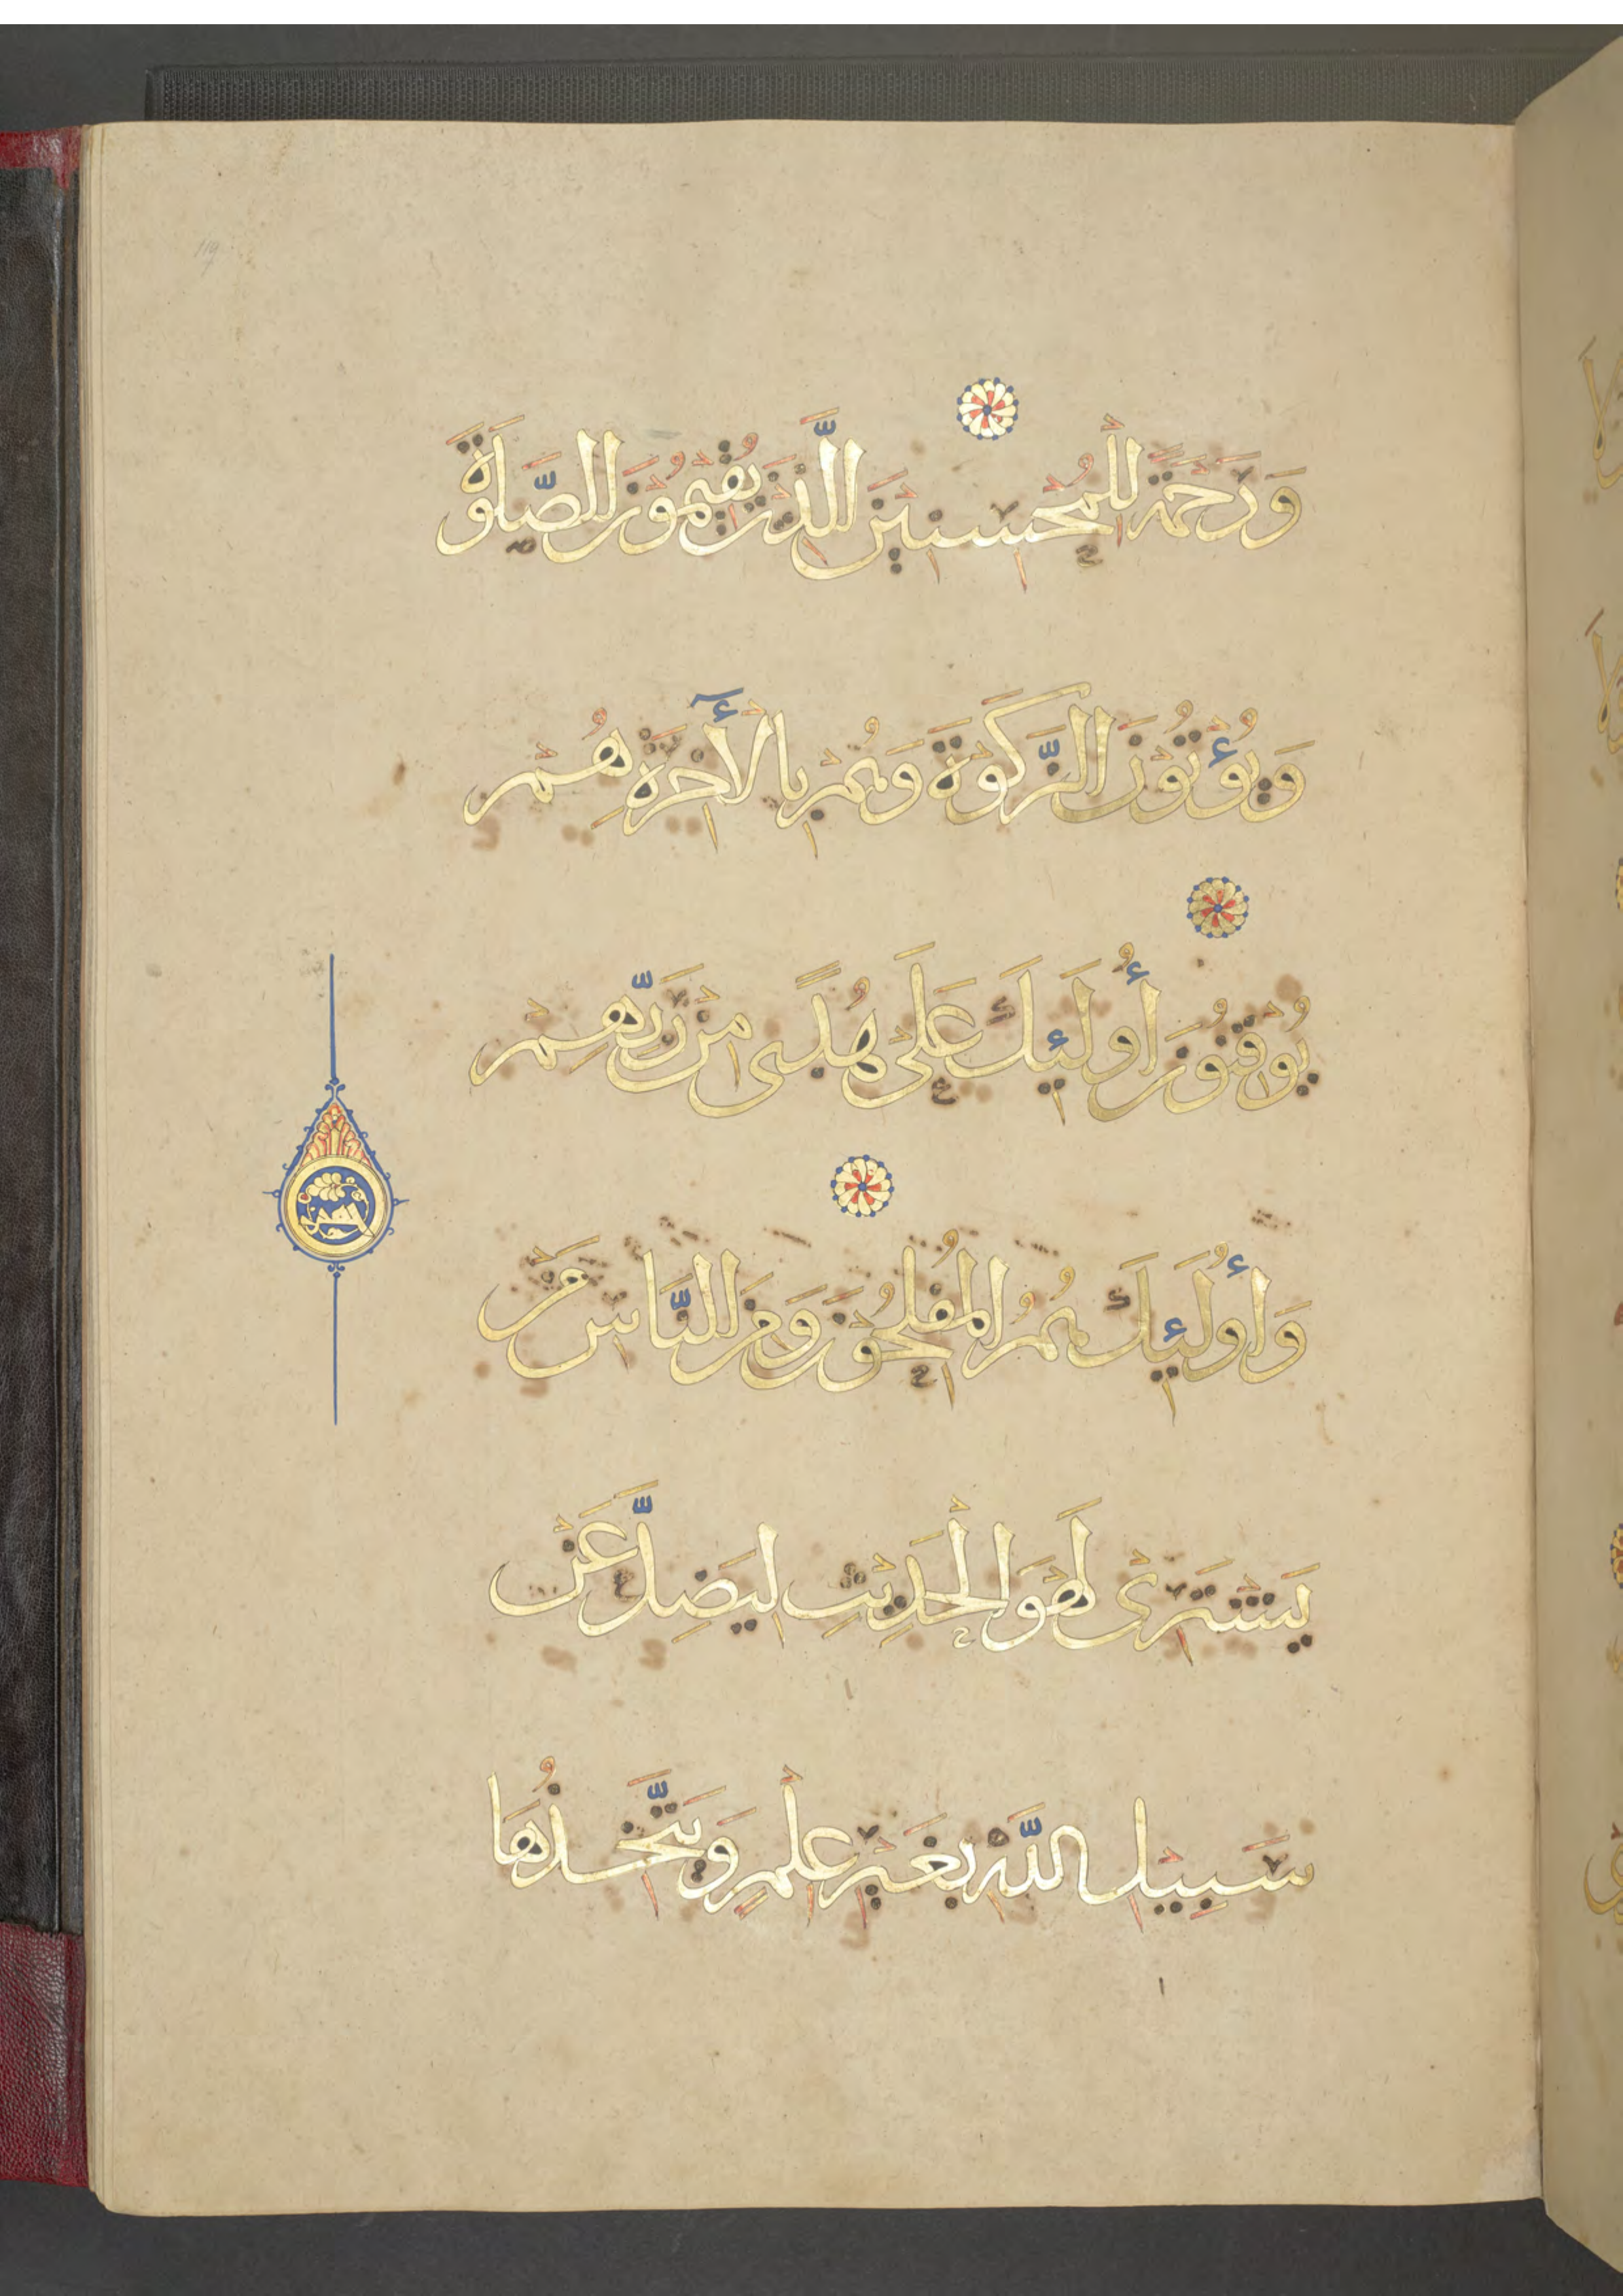 وَرَحْمَةً لِلْمُحْسِنِينَ الَّذِينَ يُقِيمُونَ الصَّلَوٰةَ
وَيُؤْتُونَ الزَّكَوٰةَ وَهُمْ بِالْأَخِرَةِ هُمْ
يُوقِنُونَ أُولَئِكَ عَلَى هُدًى مِنْ رَبِّهِمْ
وَأُولَئِكَ هُمُ الْمُفْلِحُونَ وَمِنَ النَّاسِ مَنْ
يَشْتَرِى لَهْوَ الْحَدِيثِ لِيَضِلَّ عَنْ
سَبِيلِ اللَّهِ بِغَيْرِ عِلْمٍ وَيَتَّخِذُهَا